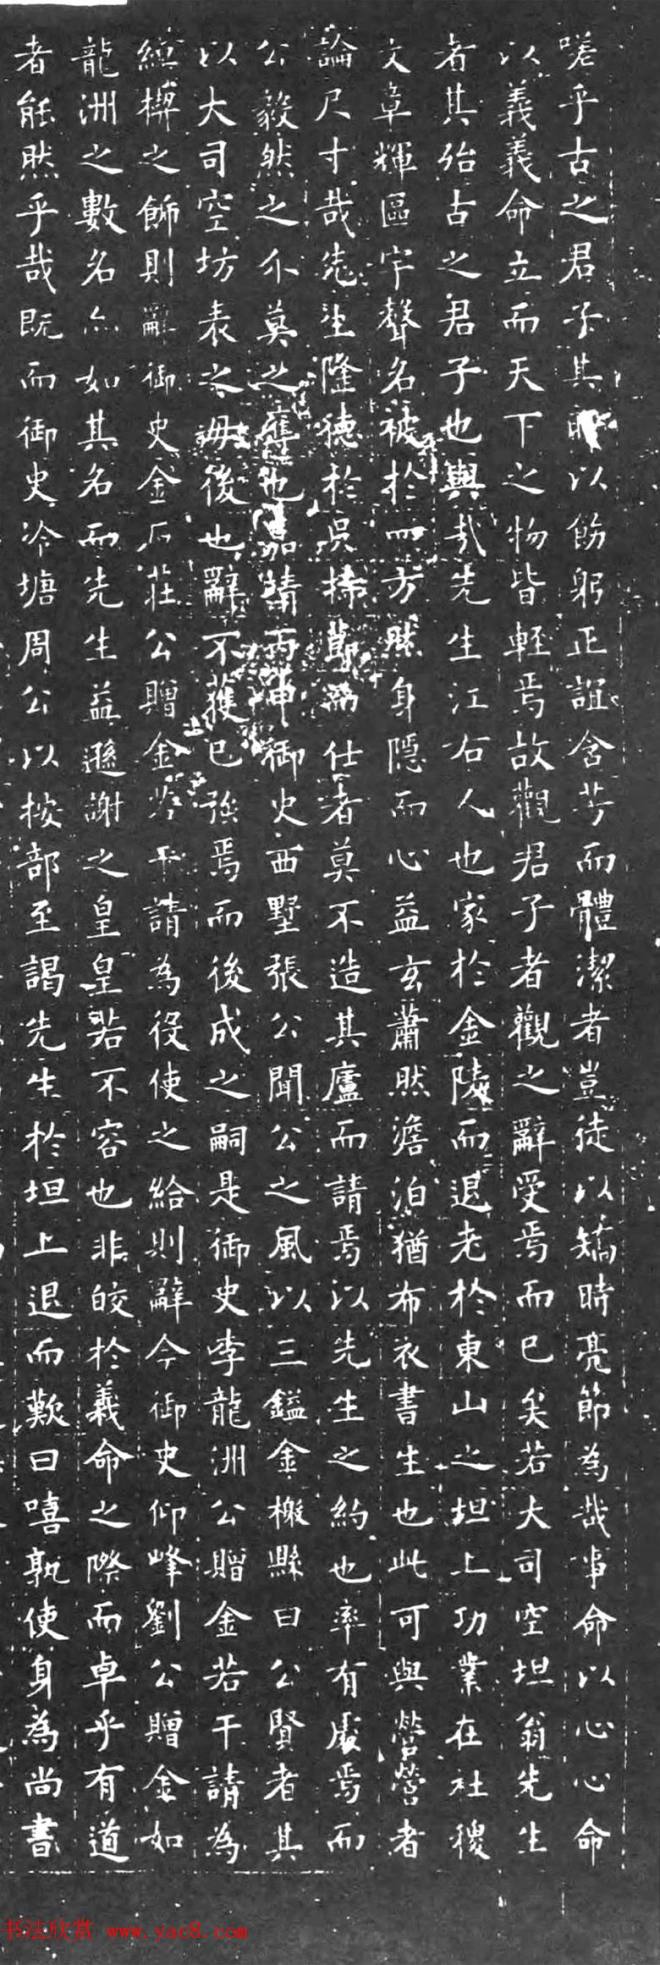 嗟乎古之君子其所以飭躬正誼含芳而體潔者豈徒以矯時亮節為哉事命以心心命
以義義命立而天下之物皆輕焉故觀君子者觀之辭受焉而已矣若大司空坦翁先生
者其殆古之君子也與哉先生江右人也家於金陵而退老於東山之坦上功業在社稷
文章輝區宇聲名被於四方然身隱而心益玄蕭然澹泊猶布衣書生也此可與營營者
論尺寸哉先生隆德於吳持節而仕者莫不造其廬而請焉以先生之約也率有贈焉而
公毅然之介莫之也茹請丙申御史西墅張公聞公之風以三鎰金檄縣曰公賢者其
以大司空坊表之毋後也辭不獲已強焉而後成之嗣是御史李龍洲公贈金若干請為
綽楔之飾則辭御史金石莊公贈金若干請為役使之給則辭今御史仰峰劉公贈金如
龍洲之數名亦如其名而先生益遜謝之皇皇若不容也非皎於義命之際而卓乎有道
者能然乎哉既而御史冷塘周公以按部至謁先生於坦上退而歎曰嘻孰使身為尚書
书法欣赏 www.yac8.com